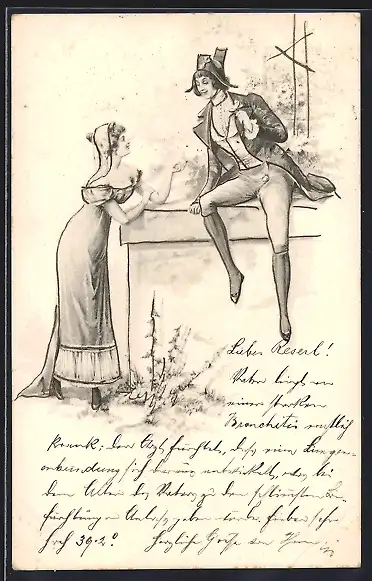 Liebes Reserl!
Vater liegt an
einer starken
Bronchitis ernstlich
krank; der Arzt fürchtet, daß eine Lungen-
entzündung sich daraus entwickelt, was bei
dem Alter des Vaters zu den schlimmsten Be-
fürchtung en Anlass geben würde. Fieber sehr
hoch 39·2° Herzliche Grüße von Ihrem